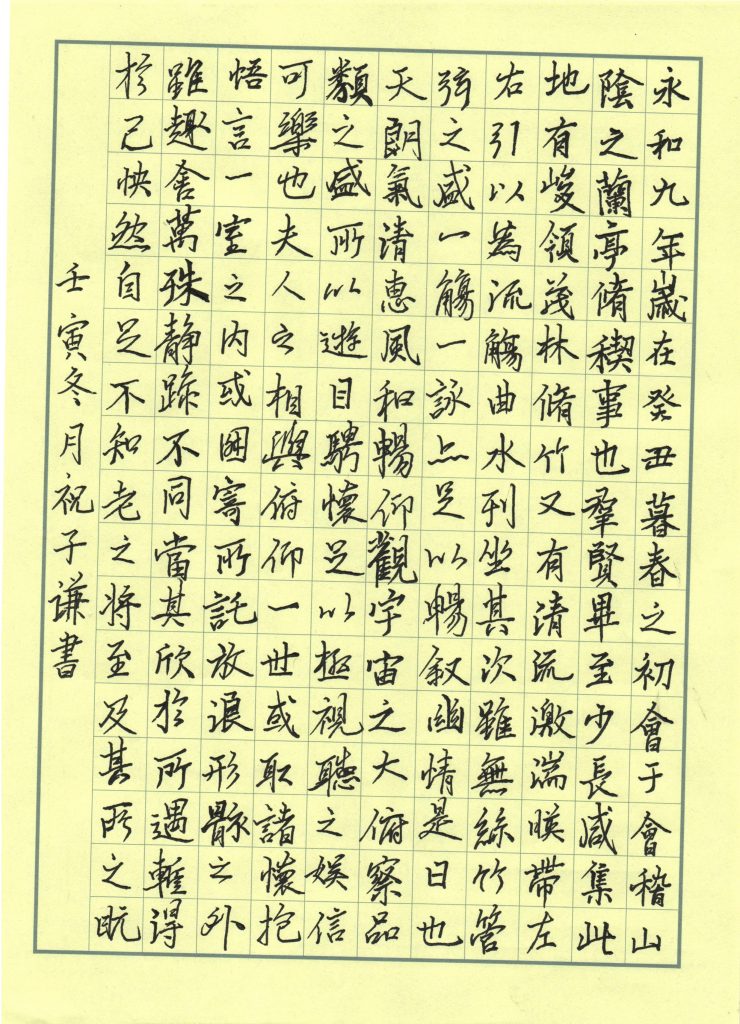 永和九年歲在癸丑暮春之初會于會稽山
陰之蘭亭脩稧事也羣賢畢至少長咸集此
地有峻領茂林脩竹又有清流激湍暎帶左
右引以為流觴曲水列坐其次雖無絲竹管
弦之盛一觴一詠亦足以暢叙幽情是日也
天朗氣清惠風和暢仰觀宇宙之大俯察品
類之盛所以遊目騁懷足以極視聽之娛信
可樂也夫人之相與俯仰一世或取諸懷抱
悟言一室之内或因寄所託放浪形骸之外
雖趣舍萬殊静躁不同當其欣於所遇暫得
於己快然自足不知老之將至及其所之既
壬寅冬月祝子谦書